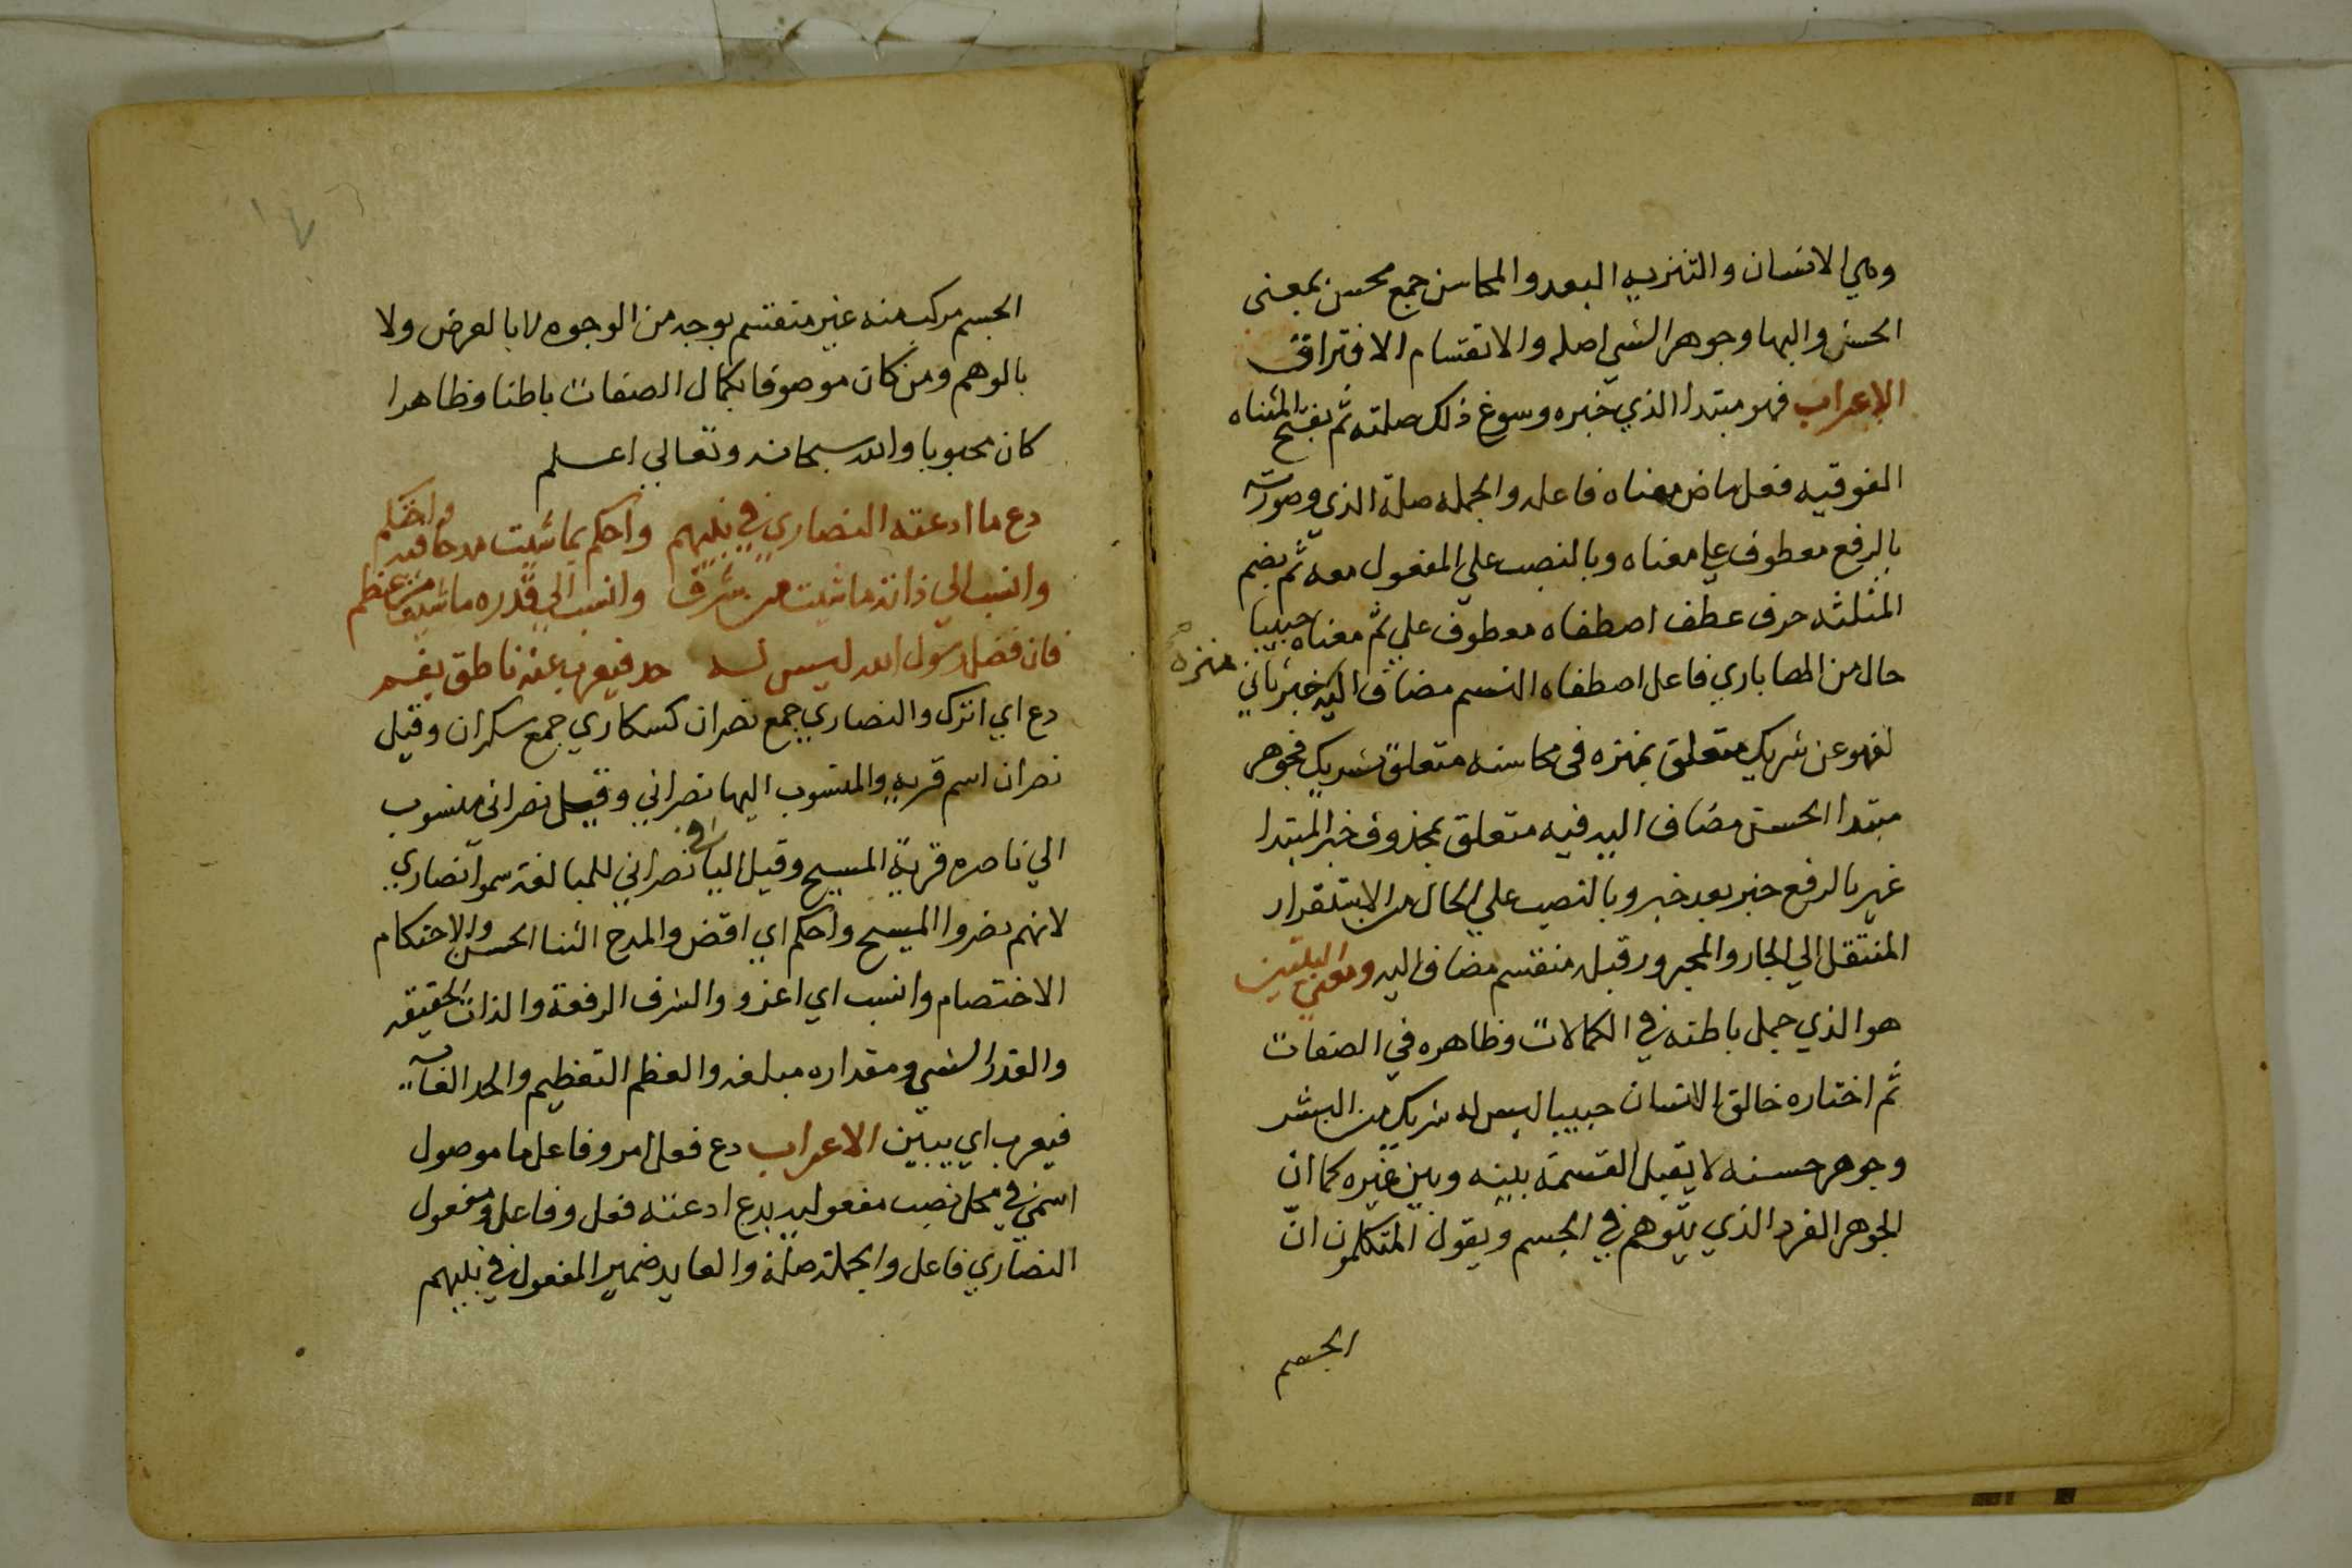 وهي الانسان والتنزيه البعد والمحاسن جمع محسن بمعنى
الحسن والبها وجوهر الشي اصله والانقسام الافتراق
الاعراب فهو مبتدا الذي خبره وسوغ ذلك صلته ثم بفتح المثناه
الفوقيه فعل ماض معناه فاعله والجمله صلة الذي وصورته
بالرفع معطوف علي معناه وبالنصب علي المفعول معه ثم بضم
المثلثه حرف عطف اصطفاه معطوف علي تم معناه حبيبا
حال من الها باري فاعل اصطفاه النسم مضاف اليه خبر ثاني منزه
لفهو عن شريك متعلق بمنزه في محاسنه متعلق بشريك فجوهر
مبتدا الحسن مضاف اليه فيه متعلق بمحذوف خبر المبتدا
غير بالرفع خبر بعد خبر وبالنصب علي الحال من الاستقرار
المنتقل الي الجار والمجرور قبله منقسم مضاف اليه ومعني البيتين
هو الذي جمل باطنه في الكمالات وظاهره في الصفات
ثم اختاره خالق الانسان حبيبا ليس له شريك من البشر
وجوهر حسنه لا يقبل القسمة بينه وبين غيره كما ان
الجوهر الفرد الذي يتوهم في الجسم ويقول المتكلمون ان
الجسم
الجسم مركب منه غير منقسم بوجه من الوجوه لا بالعرض ولا
بالوهم ومن كان موصوفا بكمال الصفات باطنا وظاهرا
كان محبوبا والله سبحانه وتعالي اعلم
دع ما ادعته النصاري في نبيهم واحكم بما شيت مدحا فيه واحتكم
وانسب الي ذاته ما شيت من شرف وانسب الي قدره ما شيت من عظم
فان فضل رسول الله ليس له حد فيعرب عنه ناطق بفم
دع اي اترك والنصاري جمع نصران كسكاري جمع سكران وقيل
نصران اسم قريه والمنسوب اليها نصراني وقيل نصراني منسوب
الي ناصره قرية المسيح وقيل اليا في نصراني للمبالغه سموا نصاري
لانهم نصروا المسيح واحكم اي اقض والمدح الثنا الحسن والاحتكام
الاختصام وانسب اي اعزو والشرف الرفعة والذات الحقيقه
والقدر الشي ومقداره مبلغه والعظم التعظيم والحد الغايه
فيعرب اي يبين الاعراب دع فعل امر وفاعل ما موصول
اسمي في محل نصب مفعوليه بدع ادعته فعل وفاعل ومفعول
النصاري فاعل والجملة صلة والعايد ضمير المفعول في نبيهم